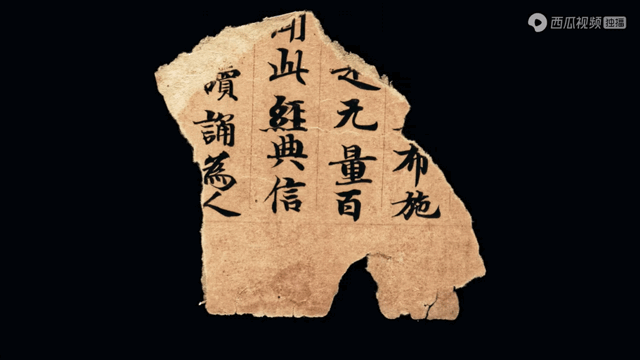 布施
无量百
此經典信
讀誦為人
西瓜视频 独播